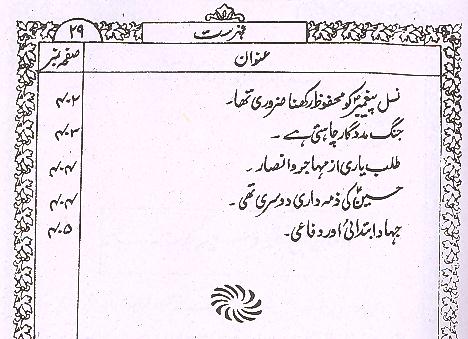 فہرست ۲۹
عنوان صفحہ نمبر
نسل پیغمبرؐ کو محفوظ رکھنا ضروری تھا۔ ۴۰۲
جنگ مددگار چاہتی ہے۔ ۴۰۳
طلب یاری از مہاجر و انصار۔ ۴۰۴
حسینؑ کی ذمہ داری دوسری تھی۔ ۴۰۴
جہاد ابتدائی اور دفاعی۔ ۴۰۵